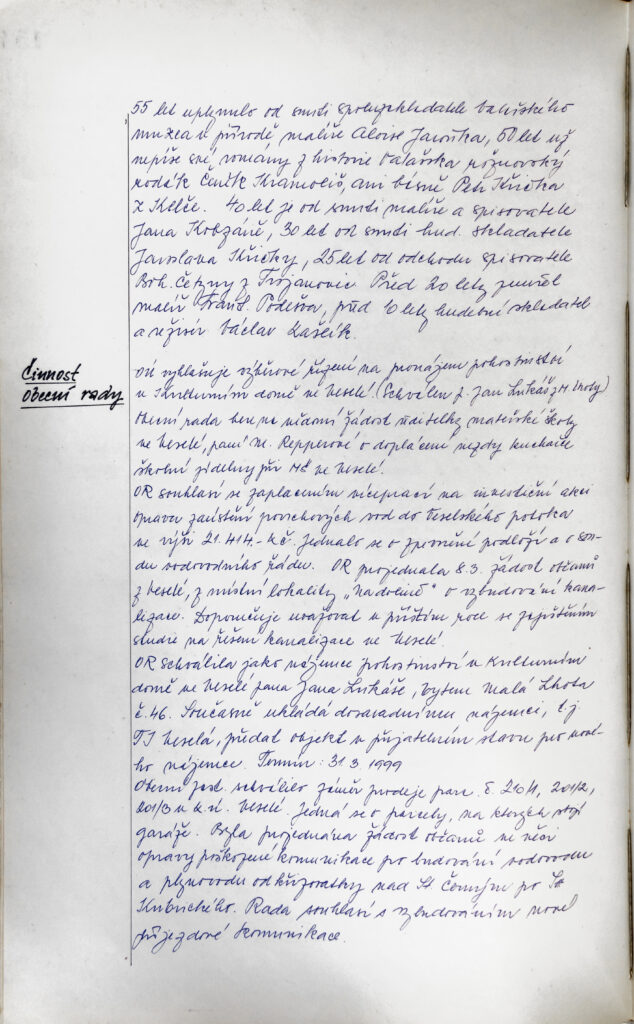 55 let uplynulo od smrti spoluzakladatele Valašského
muzea v přírodě, malíře Aloise Jaroňka, 50 let už
nepíše své romány z historie Valašska rožnovský
rodák Čeněk Kramoliš, ani básně Petr Křička
z Kelče. 40 let je od smrti malíře a spisovatele
Jana Kobzáně, 30 let od smrti hud. skladatele
Jaroslava Křičky, 25 let od odchodu spisovatele
Boh. Četyny z Trojanovic. Před 20 lety zemřel
malíř Frant. Podešva, před 10 lety hudební skladatel
a režiser Václav Kašlík.
Činnost
obecní rady
OÚ vyhlašuje výběrové řízení na pronájem pohostinství
v Kulturním domě ve Veselé. (Schválen p. Jan Lukáš z M. Lhoty)
Obecní rada bere na vědomí žádost ředitelky mateřské školy
ve Veselé, paní M. Repperové o doplácení mzdy kuchařce
školní jídelny při MŠ ve Veselé.
OR souhlasí se zaplacením víceprací na investiční akci
oprava zaústění povrchových vod do Veselského potoka
ve výši 21.414.- Kč. Jednalo se o zpevnění podloží a o son-
du vodovodního řádu. OR projednala 8.3. žádost občanů
z Veselé, z místní lokality „Na dolině" o vybudování kana-
lizace. Doporučuje uvažovat v příštím roce se zajištěním
studie na řešení kanalizace ve Veselé.
OR schválila jako nájemce pohostinství v Kulturním
domě ve Veselé pana Jana Lukáše, bytem Malá Lhota
č. 46. Současně ukládá dosavadnímu nájemci, t.j.
TJ Veselá, předat objekt v přijatelném stavu pro nové-
ho nájemce. Termín: 31 3 1999
Obecní zast. schválilo záměr prodeje parc. č. 210/1, 201/2,
201/3 v k.ú. Veselé. Jedná se o parcely, na kterých stojí
garáže. Byla projednána žádost občanů ve věci
opravy poškozené komunikace po budování vodovodu
a plynovodu od křižovatky nad St. Černým po St.
Kubrického. Rada souhlasí s vybudováním nové
příjezdové komunikace.